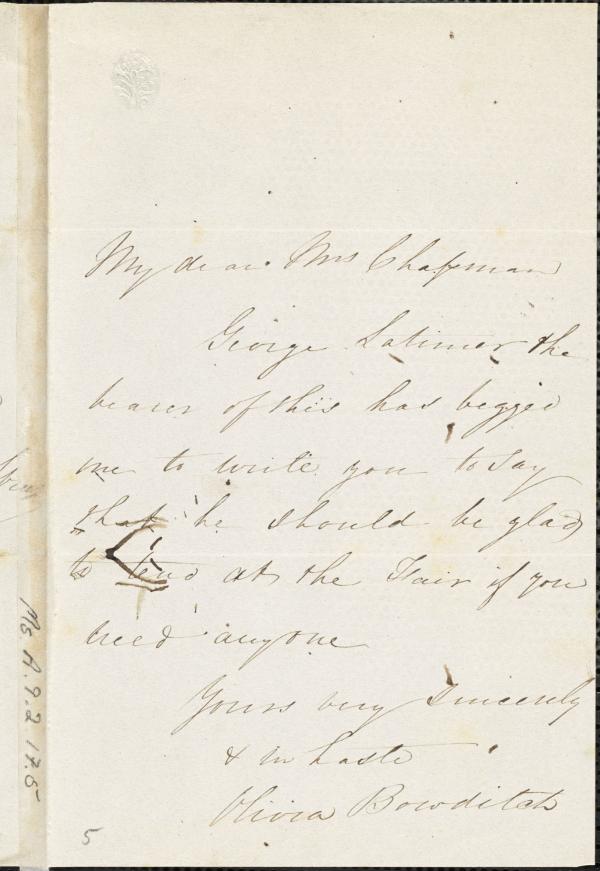 My dear Mrs Chapman
George Latimer the
bearer of this has begged
me to write you to say
that he should be glad
to tend at the Fair if you
need anyone
Yours very sincerely
& in haste
Olivia Bowditch
5
Ms. A. 9.2. 17.5